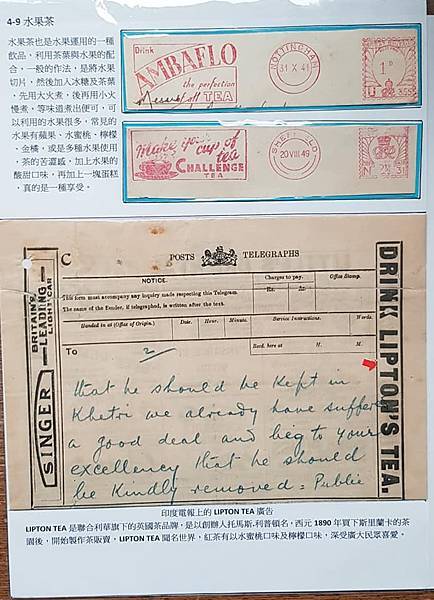 4-9 水果茶
水果茶也是水果運用的一種
飲品，利用茶葉與水果的配
合，一般的作法，是將水果
切片，然後加入冰糖及茶葉
，先用大火煮，後再用小火
慢煮，等味道煮出便可，可
以利用的水果很多，常見的
水果有蘋果、水蜜桃、檸檬
、金橘，或是多種水果使用
，茶的苦澀感，加上水果的
酸甜口味，再加上一塊蛋糕
，真的是一種享受。
Drink
AMBAFLO
the perfection
of all TEA
NOTTINGHAM
31 X 41
Make your cup of
tea
CHALLENGE
TEA
SHEFFIELD
20 VIII 49
C
POSTS
TELEGRAPHS
NOTICE.
This form must accompany any inquiry made respecting this Telegram.
The name of the Sender, if telegraphed, is written after the text.
Charges to pay.
Rs.
As.
Office Stamp.
Handed in at (Office of Origin).
Date.
Hour.
Minute.
Service Instructions.
Words.
To
2
Recd. here at
H.
M.
that he should be kept in
Khetri we already have suffer
a good deal and beg to your
excellency that he should
be kindly removed = Public
SINGER
BRITAIN'S
LEADING
LIGHT CAR
DRINK LIPTON'S TEA.
印度電報上的 LIPTON TEA 廣告
LIPTON TEA 是聯合利華旗下的英國茶品牌，是以創辦人托馬斯.利普頓名，西元 1890 年買下斯里蘭卡的茶
園後，開始製作茶販賣，LIPTON TEA 聞名世界，紅茶有以水蜜桃口味及檸檬口味，深受廣大民眾喜愛。